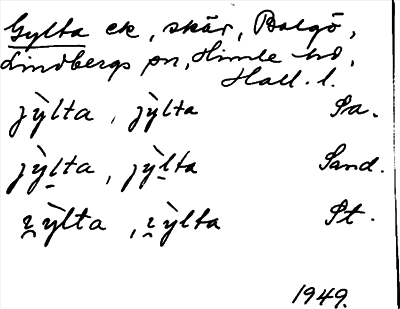 Gylta ek, skär, Balgö,
Lindbergs sn, Himle hd,
Hall. l.
jỳlta, jỳlta Sa.
jỳlta, jỳlta Sand.
ỳlta, ỳlta St.
1949.